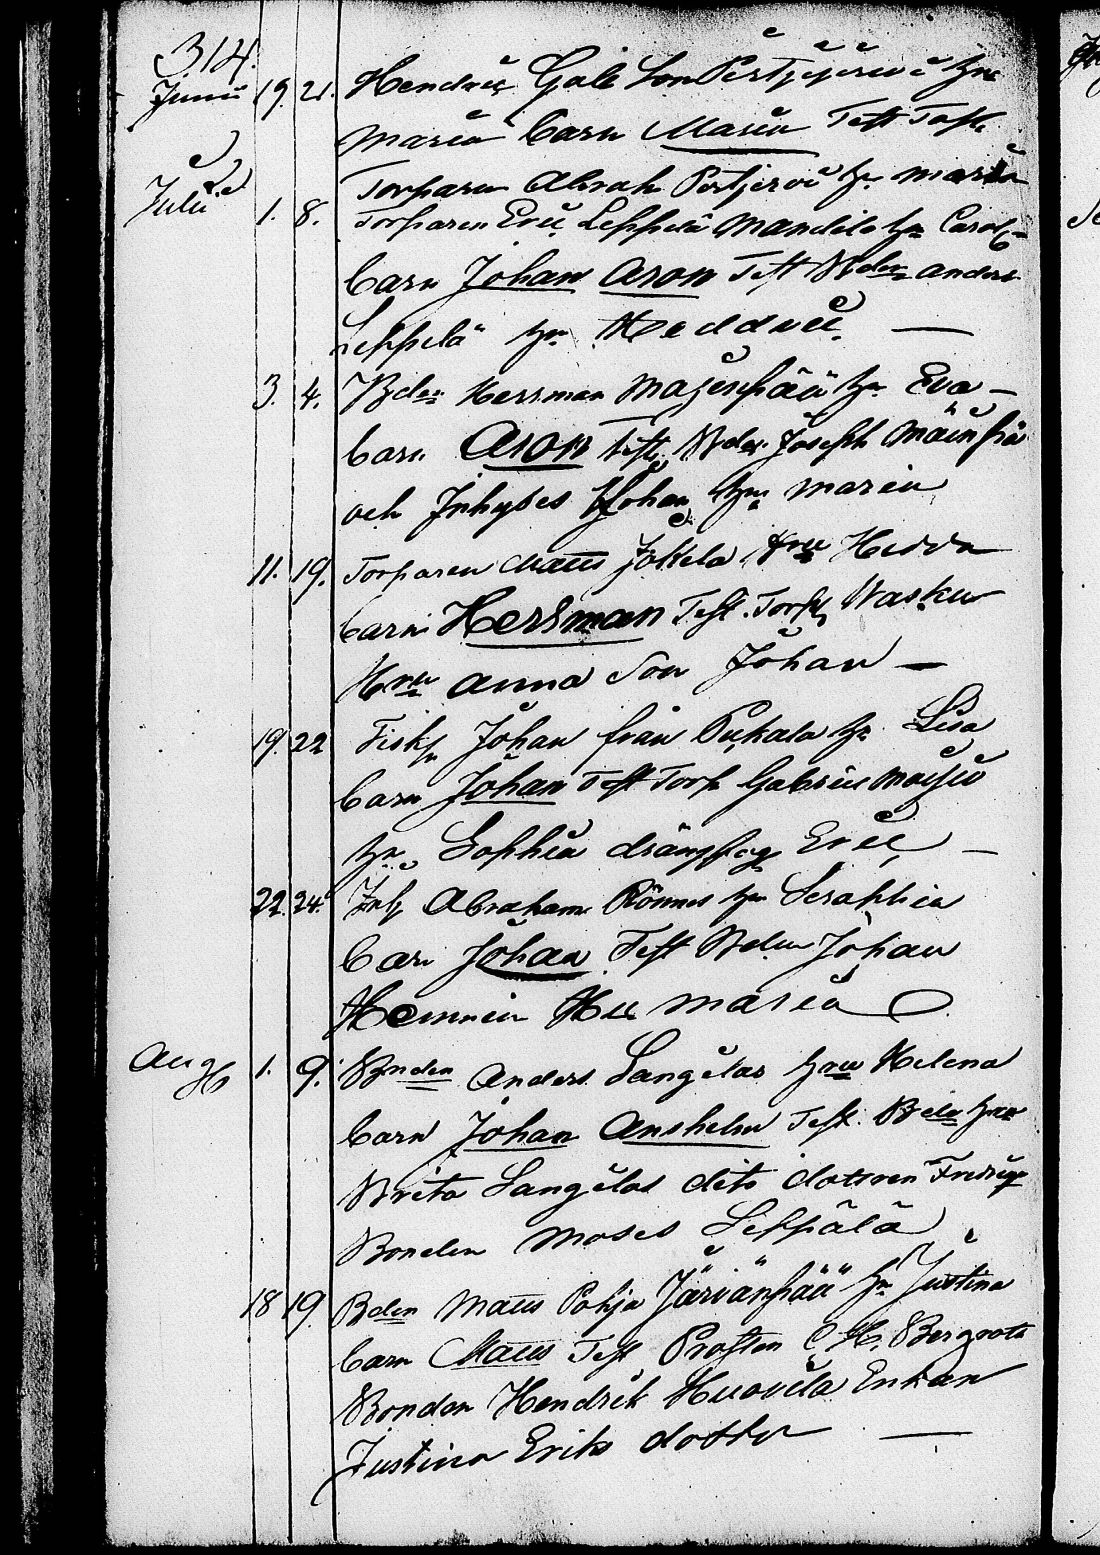 314.
Junii 19. 21. Hendric Gab: Son Pertjerwi hu
Maria barn Maria Test Torp
Torparen Abrah Pertjerwi hu Maria
Julii 1. 8. Torparen Eric Leppelä Mandila hu Carol
barn Johan Aron Test Bden Anders
Leppelä hu Heddvic —
3. 4. Bden Herrman Majespää hu Eva —
barn Aron Test Bden Joseph Mäenpää
och Inhyses Johan hu Maria
11. 19. Torparen Matts Jokela Hru Hedda
barn Herrman Test. Torp Wasku
Hru Anna Son Johan —
19. 22 Fisk Johan från Pukala hu Lisa
barn Johan Test Torp Gabriel
hu Sophia dräng Eric —
22. 24. Inh Abraham Rönnus hu Seraphia
barn Johan Test Bden Johan
Hemmin Hu Maria
Aug 1. 9. Bnden Anders Långelas hru Helena
barn Johan Anshelm Test. Bden hru
Brita Långelas dito dottren Fredriq
Bonden Moses Leppälä
18 19. Bden Matts Pohja Järvänpää hu Justina
barn Matts Test Prosten C. H. Bergroth
Bonden Hendrik Huovila Enkan
Justina Eriks dotter —